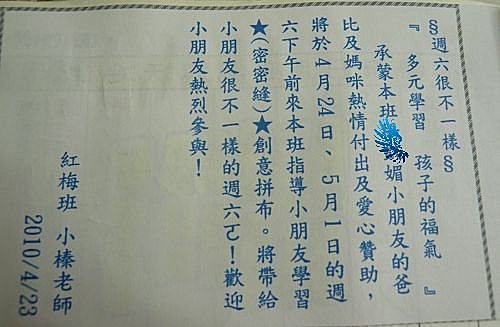 §週六很不一樣§
『 多元學習 孩子的福氣 』
承蒙本班媚小朋友的爸
比及媽咪熱情付出及愛心贊助，
將於4月24日、5月1日的週
六下午前來本班指導小朋友學習
★(密密縫)★創意拼布。將帶給
小朋友很不一樣的週六ㄛ！歡迎
小朋友熱烈參與！
紅梅班 小榛老師
2010/4/23